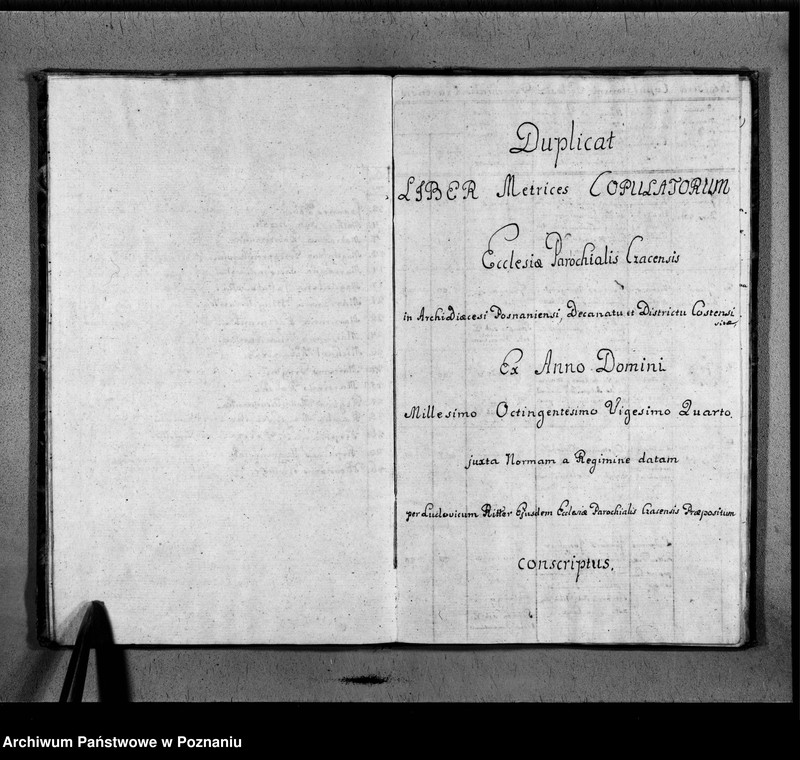 Duplicat
LIBER Metrices COPULATORUM
Ecclesiæ Parochialis Czacensis
in ArchiDiæcesi Posnaniensi, Decanatu et Districtu Costensi
sitæ,
Ex Anno Domini
Millesimo Octingentesimo Vigesimo Quarto.
juxta Normam a Regimine datam
per Ludovicum Ritter Ejusdem Ecclesiæ Parochialis Czacensis Præpositum
conscriptus.
Archiwum Państwowe w Poznaniu